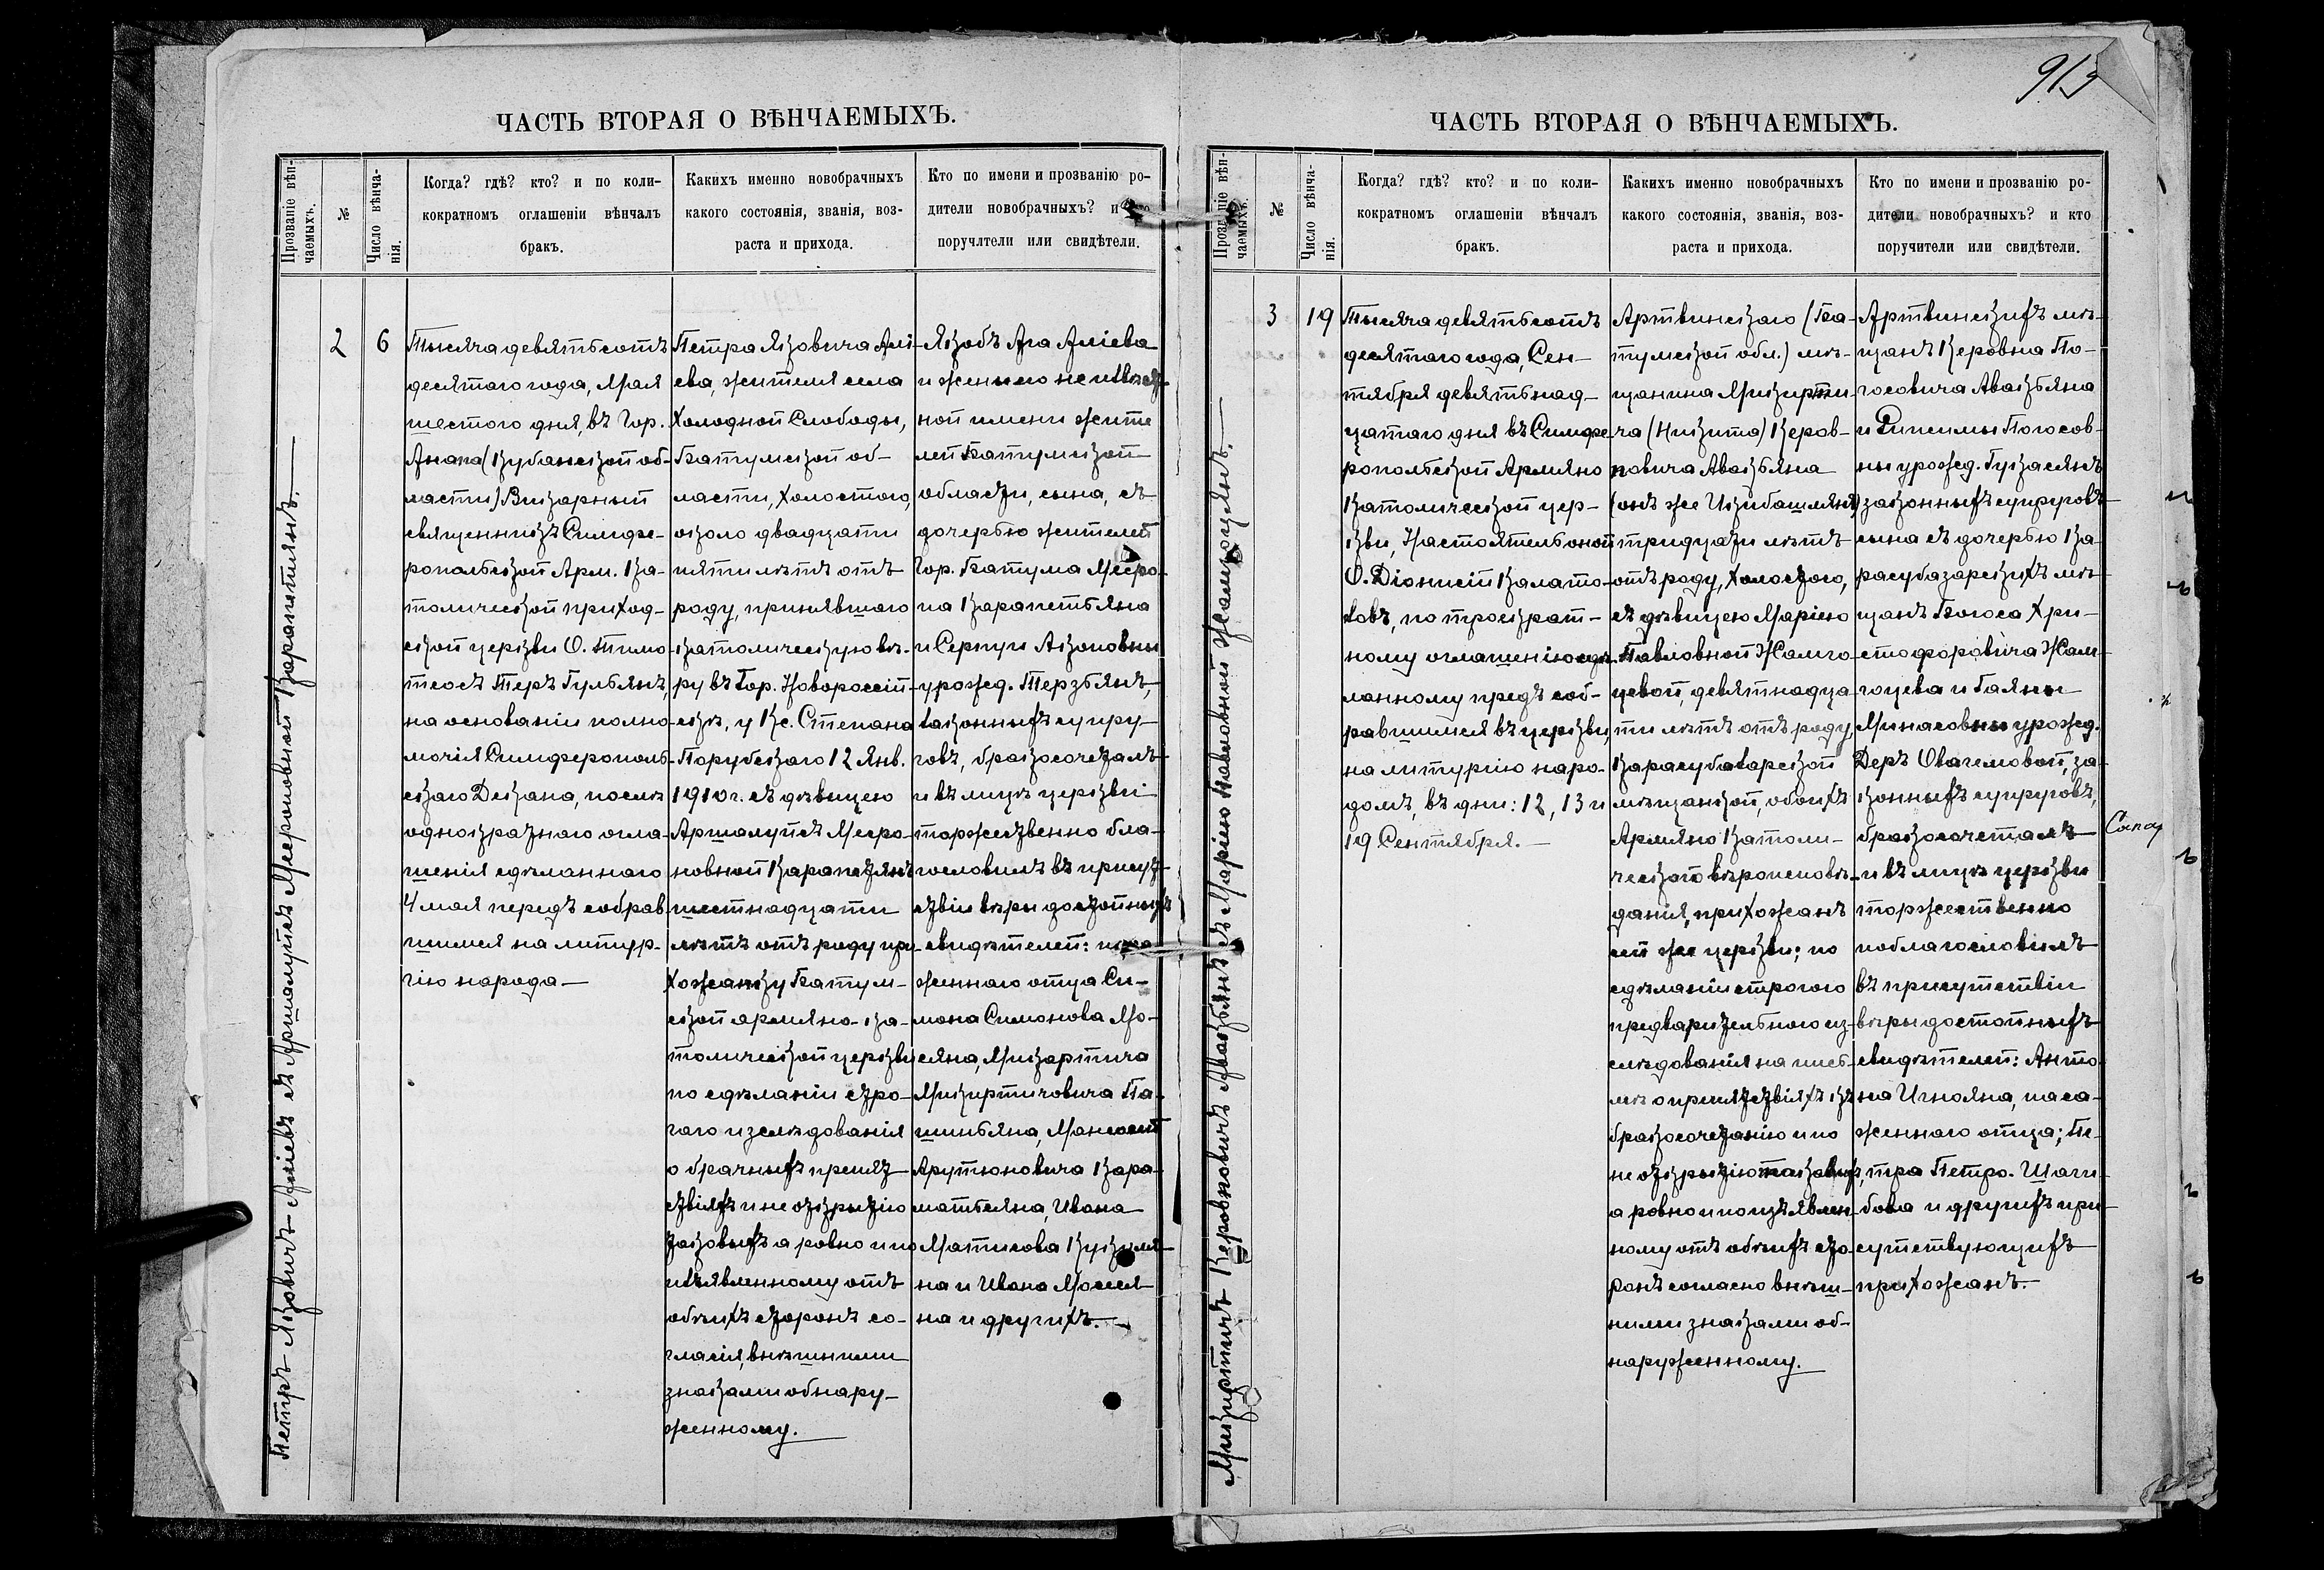 913
ЧАСТЬ ВТОРАЯ О ВѢНЧАЕМЫХЪ.
Прозваніе вѣн-
чаемыхъ.
№
Число вѣнча-
нія.
Когда? гдѣ? кто? и по коли-
кократномъ оглашеніи вѣнчалъ
бракъ.
Какихъ именно новобрачныхъ
какого состоянія, званія, воз-
раста и прихода.
Кто по имени и прозванію ро-
дители новобрачныхъ? и кто
поручлтели или свидѣтели.
Петръ Яковичъ Аліевъ съ Аршалуйсъ Месроповной Карапетянъ.
2
6
Тысяча девятьсотъ
десятаго года, Мая
шестого дня, въ Гор.
Анапа (Кубанской об-
ласти) Викарный
священникъ Симфе-
ропольской Арм. Ка-
толической приход-
ской церкви О. Тимо
теосъ Теръ Гульянъ,
на основаніи полно-
мочія Симферополь-
скаго Декана, послѣ
однократнаго огла-
шенія сдѣланнаго
4 мая передъ собрав
шимся на литур-
гію народа
Петра Яковича Алі-
ева, жителя села
Холодной Слободы,
Батумской об-
ласти, холостого,
около двадцати
пяти лѣтъ отъ
роду, принявшаго
католическую вѣ-
ру въ Гор. Новороссій-
скѣ, у Кс. Степана
Порубскаго 12 Янв.
1910 г. съ дѣвицею
Аршалуйсъ Месро-
повной Карапетянъ
шестнадцати
лѣтъ отъ роду при-
хожанку Батум-
ской армяно-ка-
толической церкви
по сдѣланіи стро-
гаго изслѣдованія
о брачныхъ препят
ствіяхъ и не открытію
таковыхъ а ровно и по
изъявленному отъ
обѣихъ сторонъ со-
гласія, внѣшними
знаками обнару-
женному.
Якобъ Ага Аліева
и жены его неизвѣст-
ной имени жите
лей Батумской
области, сына, съ
дочерью жителей
Гор. Батума Месро-
па Карапетьяна
и Серпуи Акоповны
урожд. Терзьянъ,
законныхъ супру-
говъ, бракосочеталъ
и въ лицѣ церкви
торжественно бла-
гословилъ въ присут-
ствіи вѣры достойныхъ
свидѣтелей: поса
женнаго отца Си-
мона Симонова Мо-
сяна, Микартича
Микиртичовича Па-
шиньяна, Моисей
Арутюновича Кара-
матьяна, Ивана
Матисова Кукуля-
на и Ивана Мосея
на и другихъ.
ЧАСТЬ ВТОРАЯ О ВѢНЧАЕМЫХЪ.
Прозваніе вѣн-
чаемыхъ.
№
Число вѣнча-
нія.
Когда? гдѣ? кто? и по коли-
кократномъ оглашеніи вѣнчалъ
бракъ.
Какихъ именно новобрачныхъ
какого состоянія, званія, воз-
раста и прихода.
Кто по имени и прозванію ро-
дители новобрачныхъ? и кто
поручители или свидѣтели.
Микиртичъ Керовповичъ Авакьянъ съ Маріею Павловной Жамгоцянъ.
3
19
Тысяча девятьсотъ
десятаго года, Сен-
тября девятьнад-
цатаго дня въ Симфе
ропольской Армяно
Католической цер-
кви, Настоятель оной
О. Діонисій Калато-
зовъ, по троекрат-
ному оглашенію сдѣ-
ланному предъ соб-
равшимся въ церкви,
на литургію наро-
домъ, въ дни: 12, 13 и
19 Сентября.
Артвинскаго (Ба-
тумской обл.) мѣ-
щанина Микирти-
ча (Никита) Керов-
повича Авакьяна
(онъ же Икибашлянъ)
тридцати лѣтъ
отъ роду, холостого,
съ дѣвицею Маріею
Павловной Жамго-
цевой, девятнадца
ти лѣтъ отъ роду,
Карасубазарской
мѣщанкой, обоихъ
Армяно Католи-
ческаго вѣроисповѣ-
данія, прихожанъ
сей же церкви; по
сдѣланіи строгого
предварительного из-
слѣдованія на пись-
мѣ о препятствіяхъ къ
бракосочетанію и по
не открытію таковыхъ,
а ровно и по изъявлен-
ному отъ обѣихъ сто-
ронъ согласно внѣш-
ними знаками об-
наруженному.
Артвинскихъ мѣ-
щанъ Керовпа По-
госовича Авакьяна
и Рипсимы Погосов-
ны урожд. Гукасянъ
законныхъ супруговъ
сына съ дочерью Ка-
расубазарскихъ мѣ-
щанъ Богоса Хри-
стофоровича Жам-
гоцева и Гаяны
Минасовны урожд.
Деръ Овагемовой, за-
конныхъ супруговъ,
бракосочеталъ
и въ лицѣ церкви
торжественно
поблагословилъ
въ присутствіи
вѣры достойныхъ
свидѣтелей: Анто
на Игнояна, поса-
женнаго отца; Пе-
тра Петро. Шаги-
бова и другихъ при-
сутствующихъ
прихожанъ.